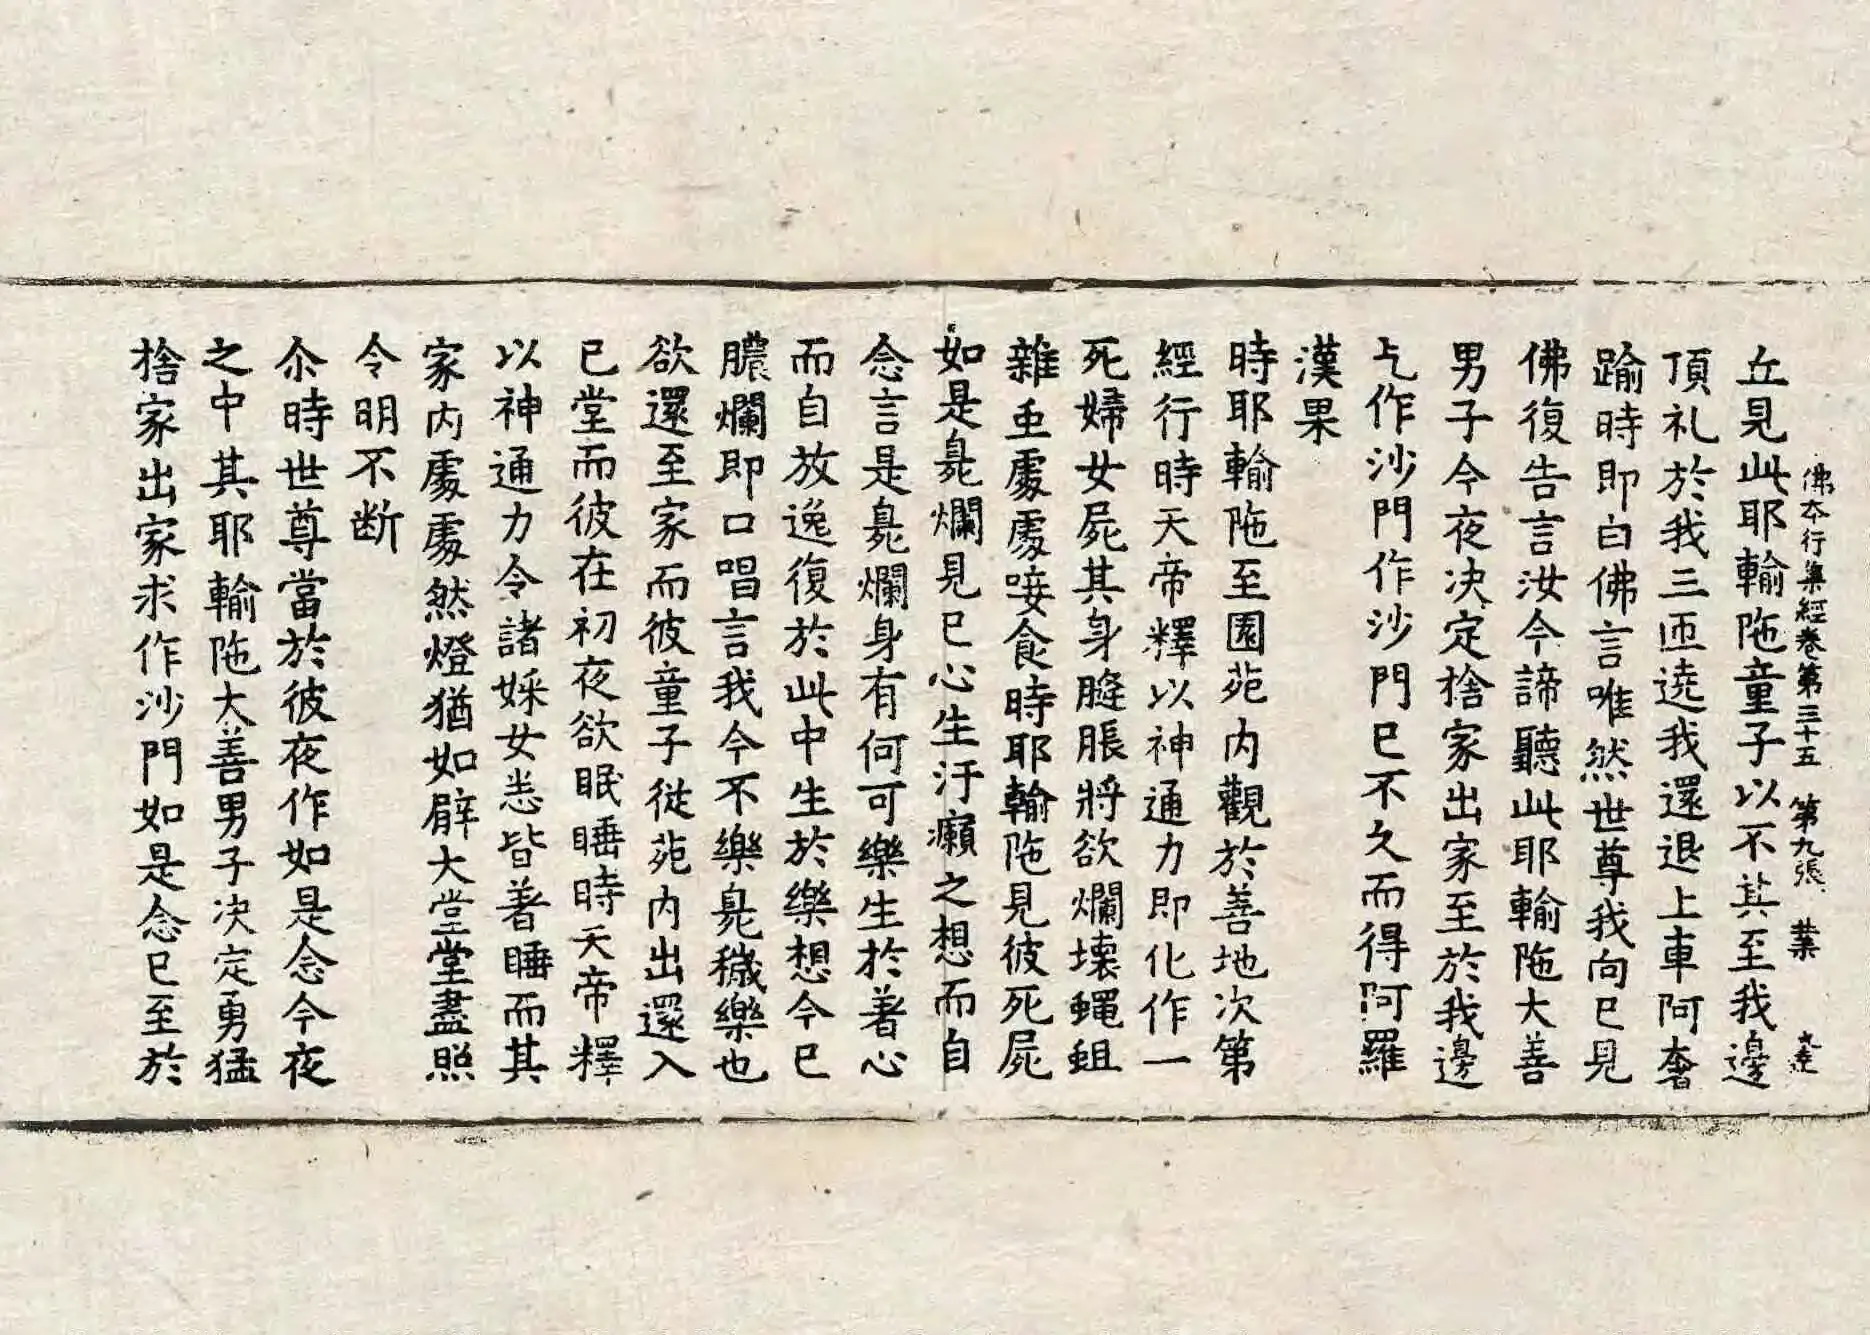 佛本行集經卷第三十五　第九張　業
丘見此耶輸陁童子以不其至我邊
頂礼於我三迊遶我還退上車阿奢
踰時即白佛言唯然世尊我向已見
佛復告言汝今諦聽此耶輸陁大善
男子今夜决定捨家出家至於我邊
乞作沙門作沙門已不久而得阿羅
漢果
時耶輸陁至園苑内觀於善地次第
經行時天帝釋以神通力即化作一
死婦女屍其身膖脹將欲爛壊蠅蛆
雜虫處處唼食時耶輸陁見彼死屍
如是臰爛見已心生汙癩之想而自
念言是臰爛身有何可樂生於著心
而自放逸復於此中生於樂想今已
膿爛即口唱言我今不樂臰穢樂也
欲還至家而彼童子從苑内出還入
已堂而彼在初夜欲眠睡時天帝釋
以神通力令諸婇女悉皆著睡而其
家内處處然燈猶如廦大堂堂盡照
令明不断
尒時世尊當於彼夜作如是念今夜
之中其耶輸陁大善男子决定勇猛
捨家出家求作沙門如是念已至於